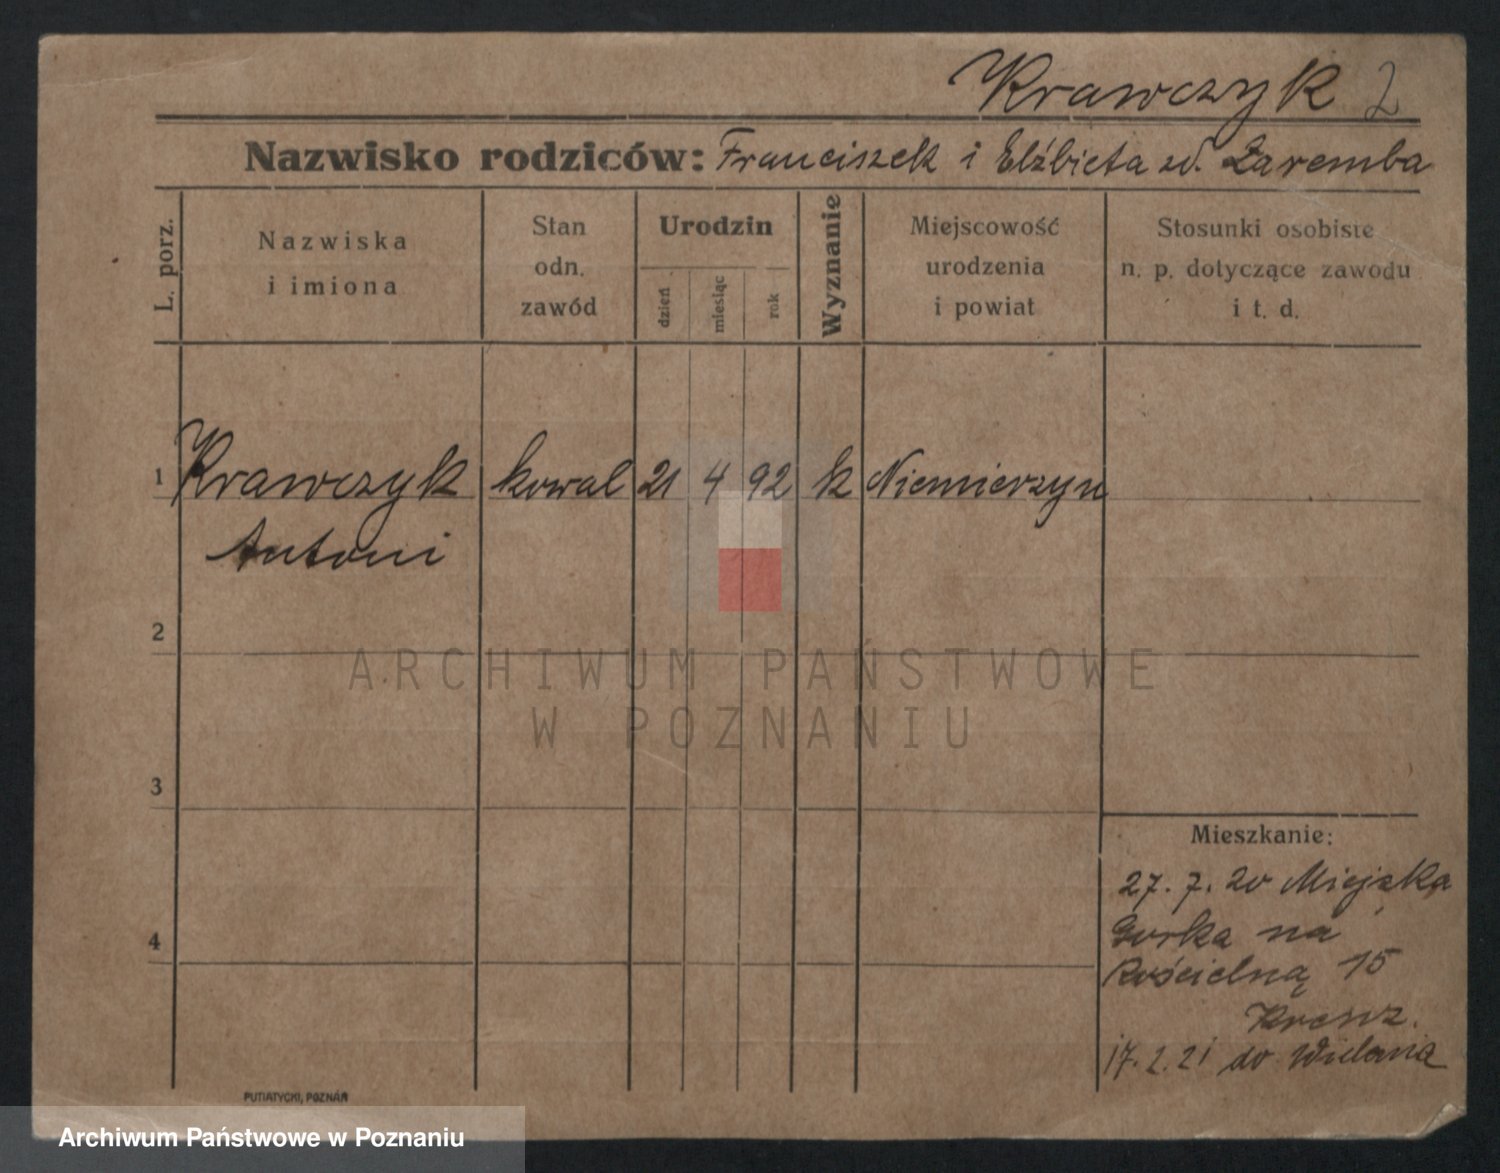 Krawczyk 2
Nazwisko rodziców: Franciszek i Elżbieta zd. Zaremba
L. porz.
Nazwiska
i imiona
Stan
odn.
zawód
Urodzin
dzień
miesiąc
rok
Wyznanie
Miejscowość
urodzenia
i powiat
Stosunki osobiste
n. p. dotyczące zawodu
i t. d.
1 Krawczyk kowal 21 4 92 k Niemierzyn
Antoni
2
ARCHIWUM PAŃSTWOWE
W POZNANIU
3
Mieszkanie:
27. 7. 20 Miejska
4
Gorka na
Kościelną 15
17. 2. 21 do
PUTIATYCKI, POZNAŃ
Archiwum Państwowe w Poznaniu